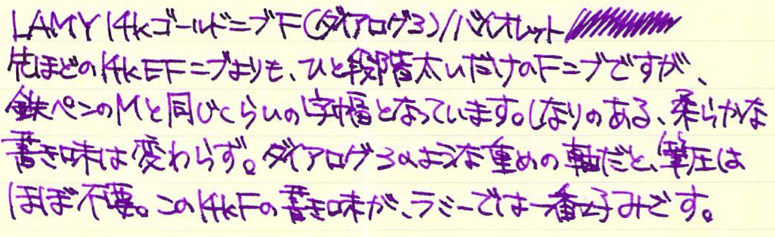 LAMY 14kゴールドニブF(ダイアログ3)/バイオレット
先ほどの14kEFニブよりも、ひと段階太いだけのFニブですが、
鉄ペンのMと同じくらいの字幅となっています。しなりのある、柔らかな
書き味は変わらず。ダイアログ3のような重めの軸だと、筆圧は
ほぼ不要。この14kFの書き味が、ラミーでは一番好みです。